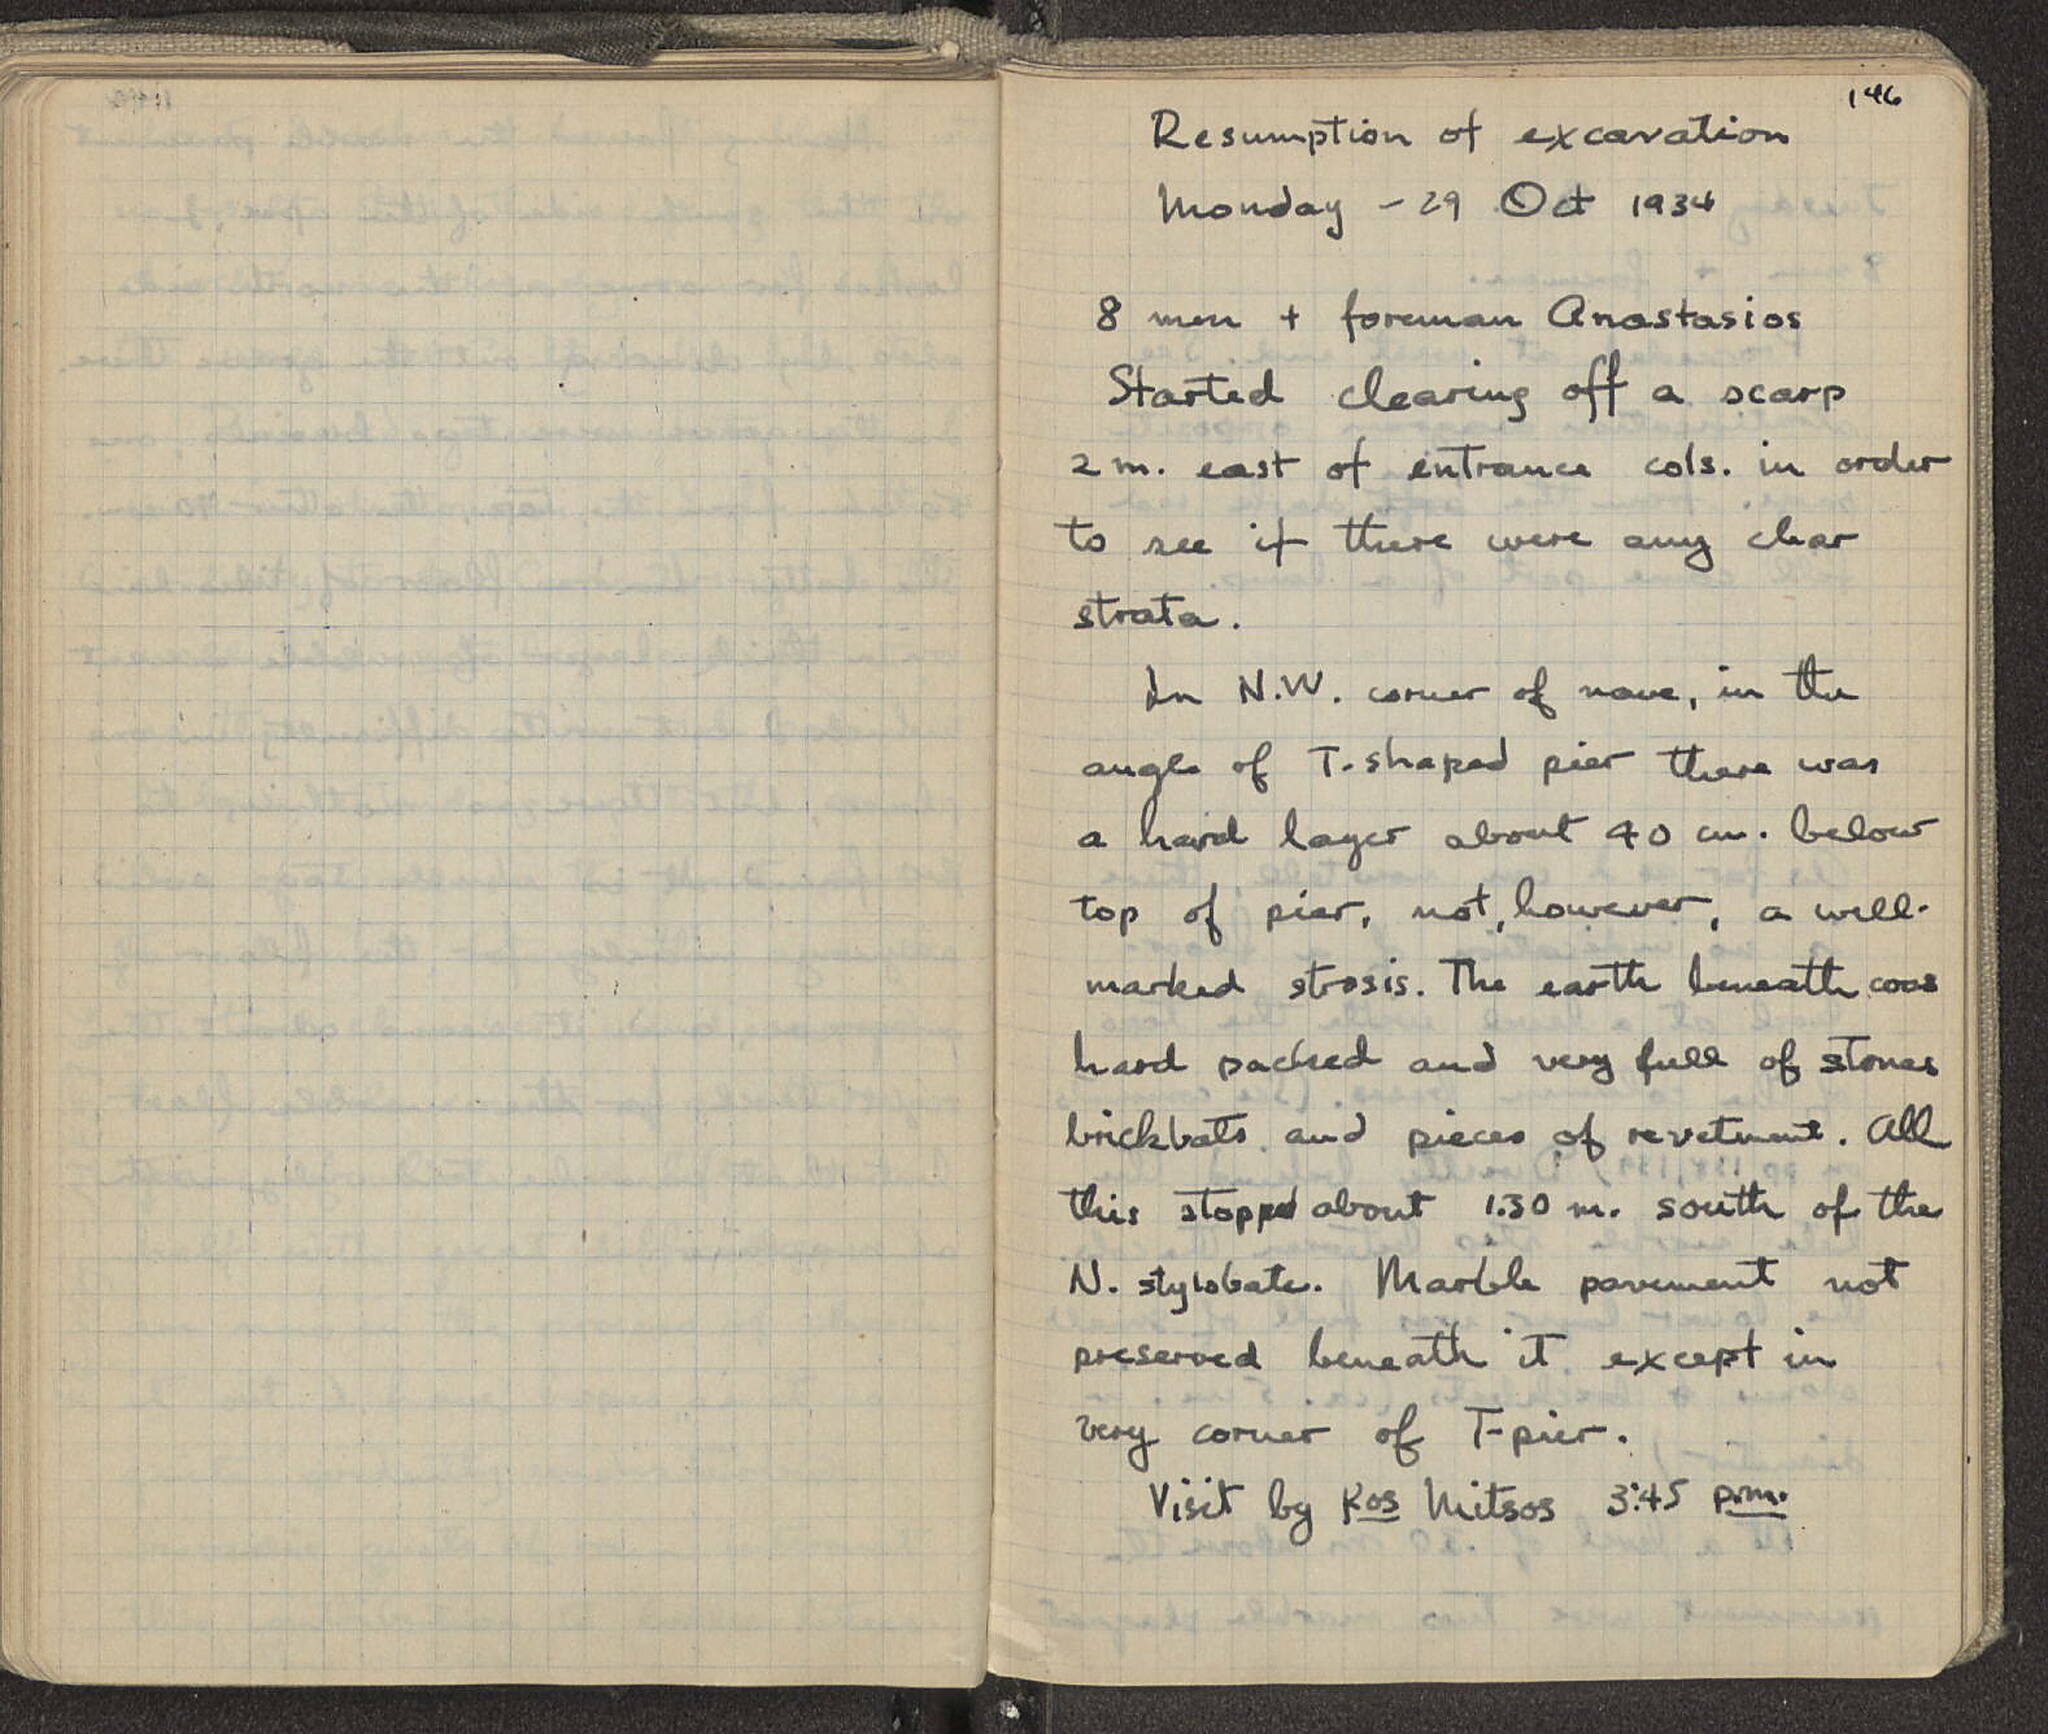 146
Resumption of excavation
Monday - 29 Oct 1934
8 men + foreman Anastasios
Started clearing off a scarp
2 m. east of entrance cols. in order
to see if there were any clear
strata.
In N.W. corner of nave, in the
angle of T-shaped pier there was
a hard layer about 40 cm. below
top of pier, not, however, a well-
marked strosis. The earth beneath was
hard packed and very full of stones
brickbats and pieces of revetment. All
this stopped about 1.30 m. south of the
N. stylobate. Marble pavement not
preserved beneath it except in
very corner of T-pier.
Visit by Kos Mitsos 3:45 p.m.